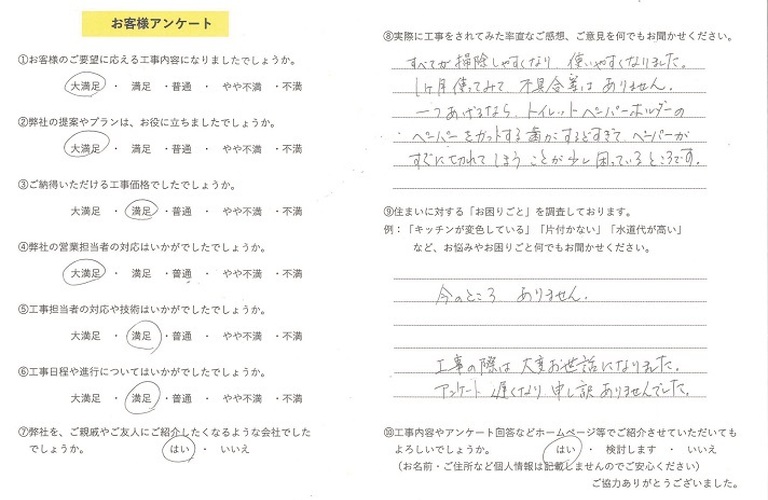 お客様アンケート
①お客様のご要望に応える工事内容になりましたでしょうか。
大満足 ・ 満足 ・普通 ・ やや不満 ・不満
②弊社の提案やプランは、お役に立ちましたでしょうか。
大満足 ・ 満足 ・普通 ・ やや不満 ・不満
③ご納得いただける工事価格でしたでしょうか。
大満足 ・ 満足 ・普通 ・ やや不満 ・不満
④弊社の営業担当者の対応はいかがでしたでしょうか。
大満足 ・ 満足 ・普通 ・ やや不満 ・不満
⑤工事担当者の対応や技術はいかがでしたでしょうか。
大満足 ・ 満足 ・普通 ・ やや不満 ・不満
⑥工事日程や進行についてはいかがでしたでしょうか。
大満足 ・ 満足 ・普通 ・ やや不満 ・不満
⑦弊社を、ご親戚やご友人にご紹介したくなるような会社でした
でしょうか。 はい ・ いいえ
⑧実際に工事をされてみた率直なご感想、ご意見を何でもお聞かせください。
すべてが掃除しやすくなり 使いやすくなりました。
1ヶ月使ってみて 不具合等は ありません。
一つあげるなら、トイレットペーパーホルダーの
ペーパーをカットする歯がするどすぎて、ペーパーが
すぐに切れてしまうことが少し困っているところです。
⑨住まいに対する「お困りごと」を調査しております。
例：「キッチンが変色している」「片付かない」「水道代が高い」
など、お悩みやお困りごと何でもお聞かせください。
今のところ ありません。
工事の際は 大変お世話になりました。
アンケート 遅くなり 申し訳ありませんでした。
⑩工事内容やアンケート回答などホームページ等でご紹介させていただいても
よろしいでしょうか。 はい ・ 検討します ・ いいえ
（お名前・ご住所など個人情報は記載しませんのでご安心ください）
ご協力ありがとうございました。